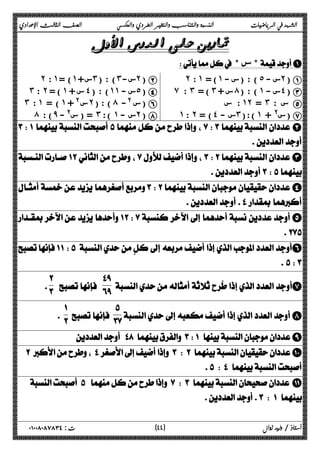 الرشيد في الرياضيات النسبه والتناسب والتغير الطردي والعكسي الصف الثالث الإعدادي
تمارين على الدرس الأول
١ أوجد قيمة " س " في كل مما يأتي :
١ (٢س - ٥) : (س - ١) = ١ : ٢
٢ (٢س - ٣) : (٣س + ١) = ١ : ٢
٣ (٤س - ١) : (٨س + ٣) = ٣ : ٧
٤ (٥س - ١١) : (٤س + ١) = ٢ : ٣
٥ س : ٣ = ١٢ : س
٦ (س٢ - ٨) : (٢س٢ + ١) = ١ : ٣
٧ (س٢ + ١) : (٣س - ٤) = ٢ : ١
٨ (٢س - ١) : ٣ = (س٢ - ٩) : ٨
٢ عددان النسبة بينهما ٣ : ٧ ، وإذا طرح من كل منهما ٥ أصبحت النسبة بينهما ١ : ٣
أوجد العددين .
٣ عددان النسبة بينهما ٢ : ٣ ، وإذا أضيف للأول ٧ ، وطرح من الثاني ١٢ صارت النسبة
بينهما ٥ : ٣ أوجد العددين .
٤ عددان حقيقيان موجبان النسبة بينهما ٢ : ٣ ومربع أصغرهما يزيد عن خمسة أمثال
أكبرهما بمقدار ٤ . أوجد العددين .
٥ أوجد عددين نسبة أحدهما إلى الآخر كنسبة ٧ : ١٢ وأحدها يزيد عن الآخر بمقدار
٢٧٥ .
٦ أوجد العدد الموجب الذي إذا أضيف مربعه إلى كل من حدي النسبة ٥ : ١١ فإنها تصبح
٣ : ٥ .
٧ أوجد العدد الذي إذا طُرح ثلاثة أمثاله من حدي النسبة ٤٩/٦٩ فإنها تصبح ٢/٣ .
٨ أوجد العدد الذي إذا أضيف مكعبه إلى حدي النسبة ٥/٣٧ فإنها تصبح ١/٢ .
٩ عددان موجبان النسبة بينها ١ : ٣ والفرق بينهما ٤٨ أوجد العددين
١٠ عددان حقيقيان النسبة بينهما ٢ : ٣ وإذا أضيف إلى الأصغر ٤ ، وطرح من الأكبر ٢
أصبحت النسبة بينهما ٤ : ٥ .
١١ عددان صحيحان النسبة بينهما ٣ : ٧ وإذا طرح من كل منهما ٥ أصبحت النسبة
بينهما ١ : ٣ . أوجد العددين .
أستاذ / وليد نوال (٤٤) ت : ٠١٠٠٨٠٨٧٨٣٤